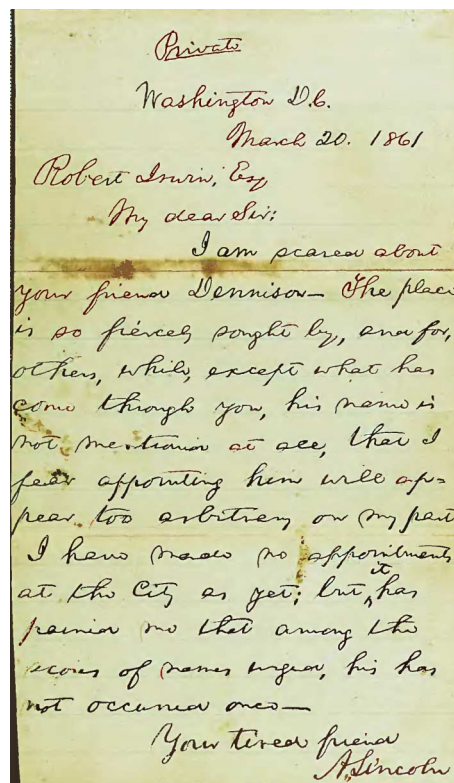 Private
Washington D.C.
March 20. 1861
Robert Irwin, Esq
My dear Sir:
I am scared about
your friend Dennison— The place
is so fiercely sought by, and for,
others, while, except what has
come through you, his name is
not mentioned at all, that I
fear appointing him will ap=
pear too arbitrary on my part
I have made no appointments
at the City as yet; but it has
pained me that among the
scores of names urged, his has
not occurred once—
Your tired friend
A. Lincoln